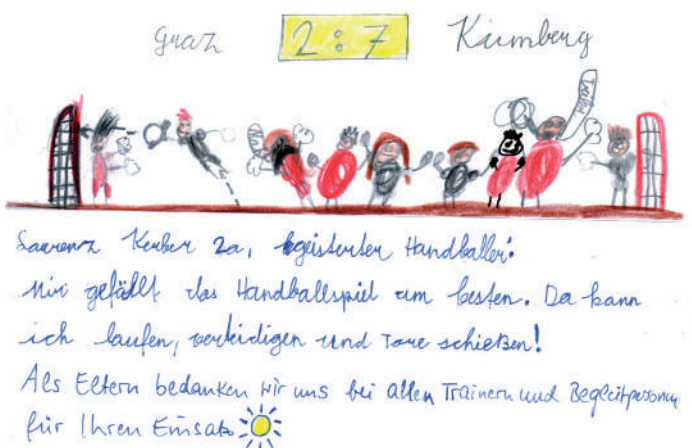 Graz 2:7 Kumberg
Laurenz Kerber 2a, begeisterter Handballer:
Mir gefällt das Handballspiel am besten. Da kann
ich laufen, verteidigen und Tore schießen!
Als Eltern bedanken wir uns bei allen Trainern und Begleitpersonen
für Ihren Einsatz